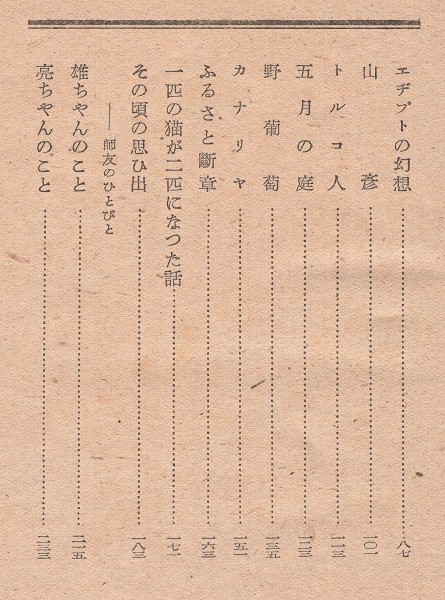 エヂプトの幻想……八七
山彦……一〇一
トルコ人……一一三
五月の庭……一二三
野葡萄……一三五
カナリヤ……一五一
ふるさと斷章……一六三
一匹の猫が二匹になつた話……一七一
その頃の思ひ出……一八三
――師友のひとびと
雄ちやんのこと……二一五
亮ちやんのこと……二三三